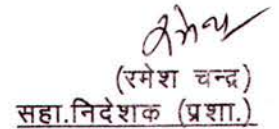 (रमेश चन्द्र)
सहा.निदेशक (प्रशा.)